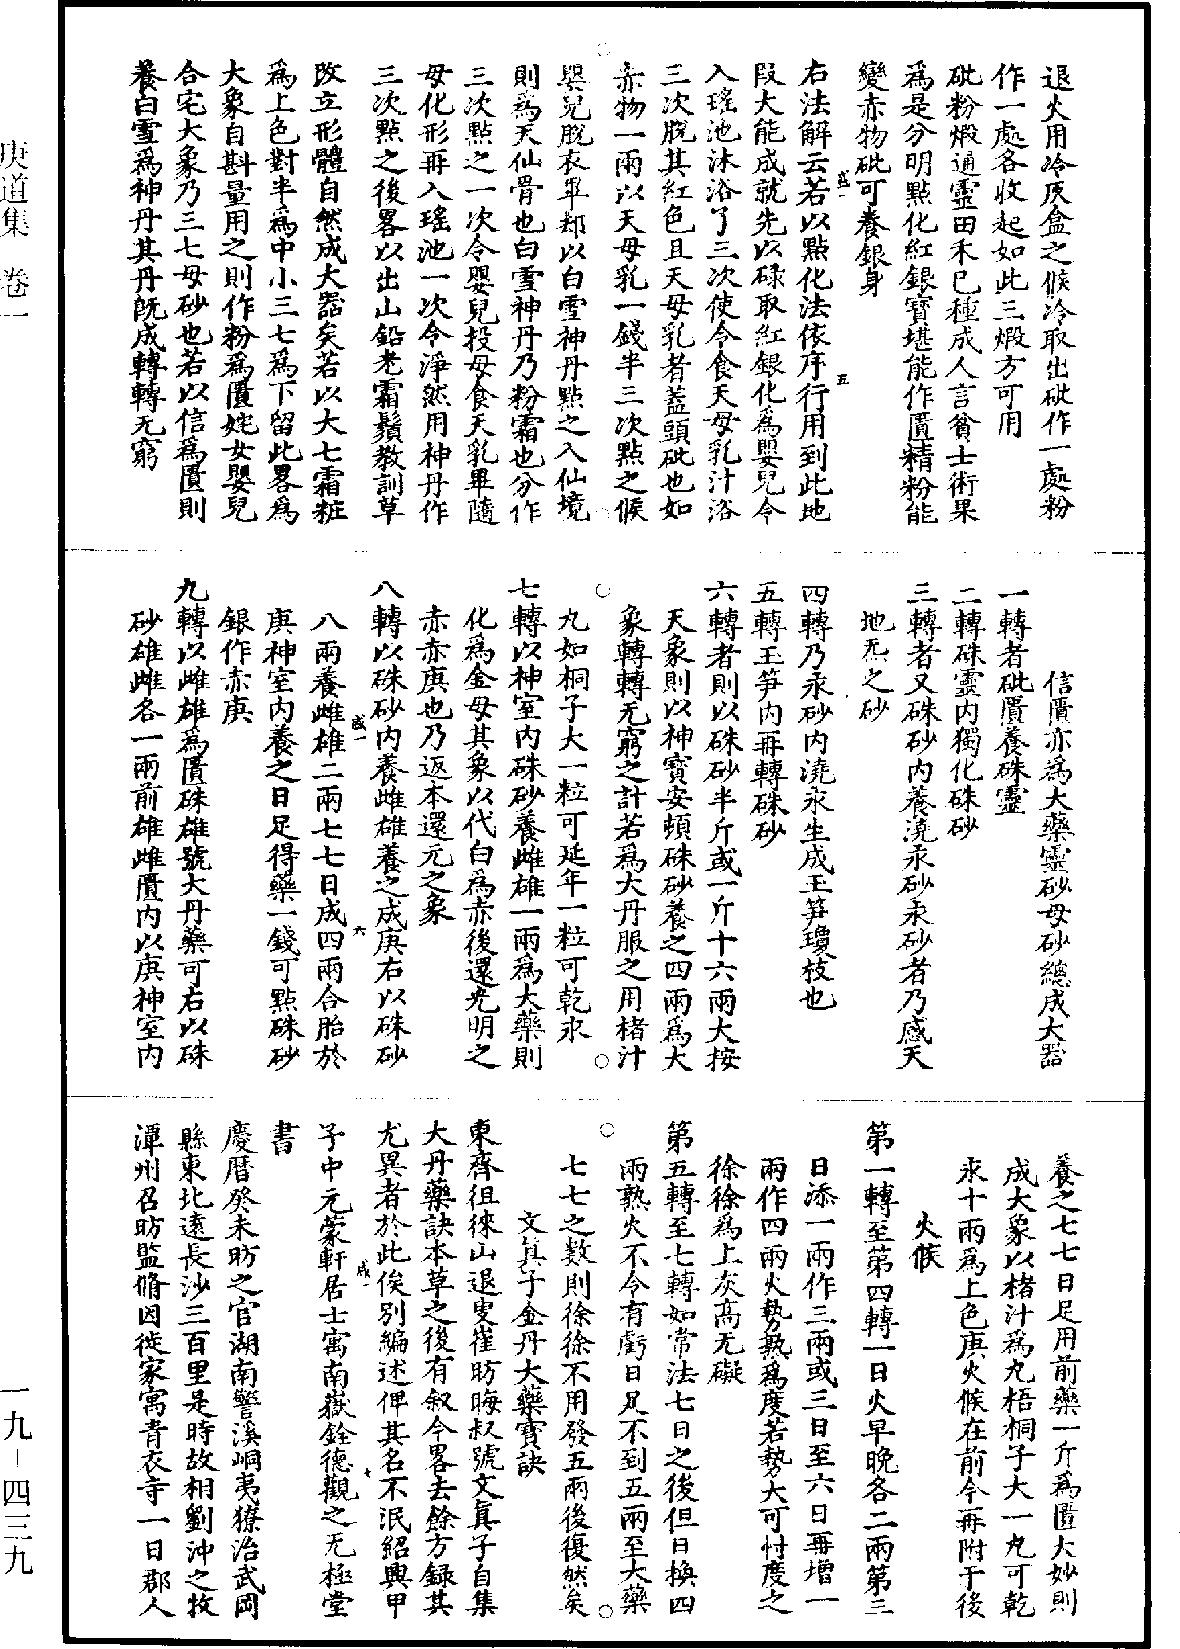 庚道集　卷一
退火用冷灰盒之候冷取出砒作一處粉
作一處各收起如此三煅方可用
砒粉煅通靈田禾已種成人言貧士術果
爲是分明點化紅銀寶堪能作匱精粉能
變赤物砒可養銀身
右法解云若以點化法依序行用到此地
叚大能成就先以碌取紅銀化爲嬰兒令
入瑤池沐浴了三次使令食天母乳汁洛
三次脫其紅色且天母乳者蓋頭砒也如
赤物一兩以天母乳一錢半三次點之候
嬰兒脫衣畢却以白雪神丹點之入仙境
則爲天仙骨也白雪神丹乃粉霜也分作
三次點之一次令嬰兒投母食天乳畢隨
母化形再入瑤池一次令淨然用神丹作
三次點之後畧以出山鉛老霜鬚教訓草
改立形體自然成大器矣若以大七霜粧
爲上色對半爲中小三七爲下留此畧爲
大象自斟量用之則作粉爲匱姹女嬰兒
合宅大象乃三七母砂也若以信爲匱則
養白雪爲神丹其丹旣成轉轉无窮
信匱亦爲大藥靈砂母砂總成大器
一轉者砒匱養硃靈
二轉硃靈內獨化硃砂
三轉者又硃砂內養澆汞砂汞砂者乃感天
地炁之砂
四轉乃汞砂內澆汞生成玉笋瓊枝也
五轉玉笋內再轉硃砂
六轉者則以硃砂半斤或一斤十六兩大按
天象則以神寶安頓硃砂養之四兩爲大
象轉轉无窮之計若爲大丹服之用楮汁
丸如桐子大一粒可延年一粒可乾汞
七轉以神室內硃砂養雌雄一兩爲大藥則
化爲金母其象以代白爲赤後還光明之
赤赤庚也乃返本還元之象
八轉以硃砂內養雌雄養之成庚右以硃砂
八兩養雌雄二兩七七日成四兩合胎於
庚神室內養之日足得藥一錢可點硃砂
銀作赤庚
九轉以雌雄爲匱硃雄號大丹藥可右以硃
砂雄雌各一兩前雄雌匱內以庚神室內
養之七七日足用前藥一斤爲匱大妙則
成大象以楮汁爲丸梧桐子大一丸可乾
汞十兩爲上色庚火候在前今再附于後
火候
第一轉至第四轉一日火早晚各二兩第三
日添一兩作三兩或三日至六日再增一
兩作四兩火勢熟爲度若勢大可忖度之
徐徐爲上灰高无礙
第五轉至七轉如常法七日之後但日換四
兩熟火不令有虧日足不到五兩至大藥
七七之數則徐徐不用發五兩後復然矣
文眞子金丹大藥寶訣
東齊徂徠山退叟崔昉晦叔號文眞子自集
大丹藥訣本草之後有叙今畧去餘方錄其
尤異者於此俟別編述俾其名不泯紹興甲
子中元蒙軒居士寓南嶽銓德觀之无極堂
書
慶曆癸未昉之官湖南警溪峒夷獠治武岡
縣東北遠長沙三百里是時故相劉沖之牧
潭州召昉監脩因徙家寓青衣寺一日郡人
一九－四三九